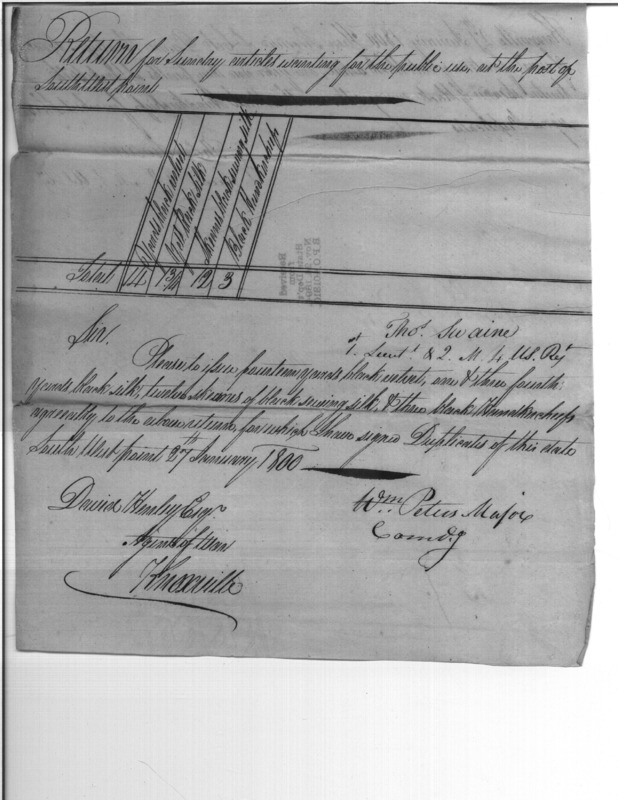 Return for Sunday articles wanting for the public use, at the post of
South West point
Yards black
Yds black silk
Skains black sewing silk
Black Hanukerchiefs
Total 14 1¾ 12 3
Thos. Swaine
1. Lieut. & Q. M. 4 U.S. Regt
Sir.
Please to issue fourteen yards black, one & three fourth
yards black silk, twelve skeans of black sewing silk, & three black Hanukerchiefs
agreeably to the above return, for which I have signed Duplicates of this date
South West point 27th January 1800
David Henley Esqr.
Agent of War
Knoxville
Wm. Peters Major
Comdg
Received
from
State Dept.
B.P.O. NOIBIV